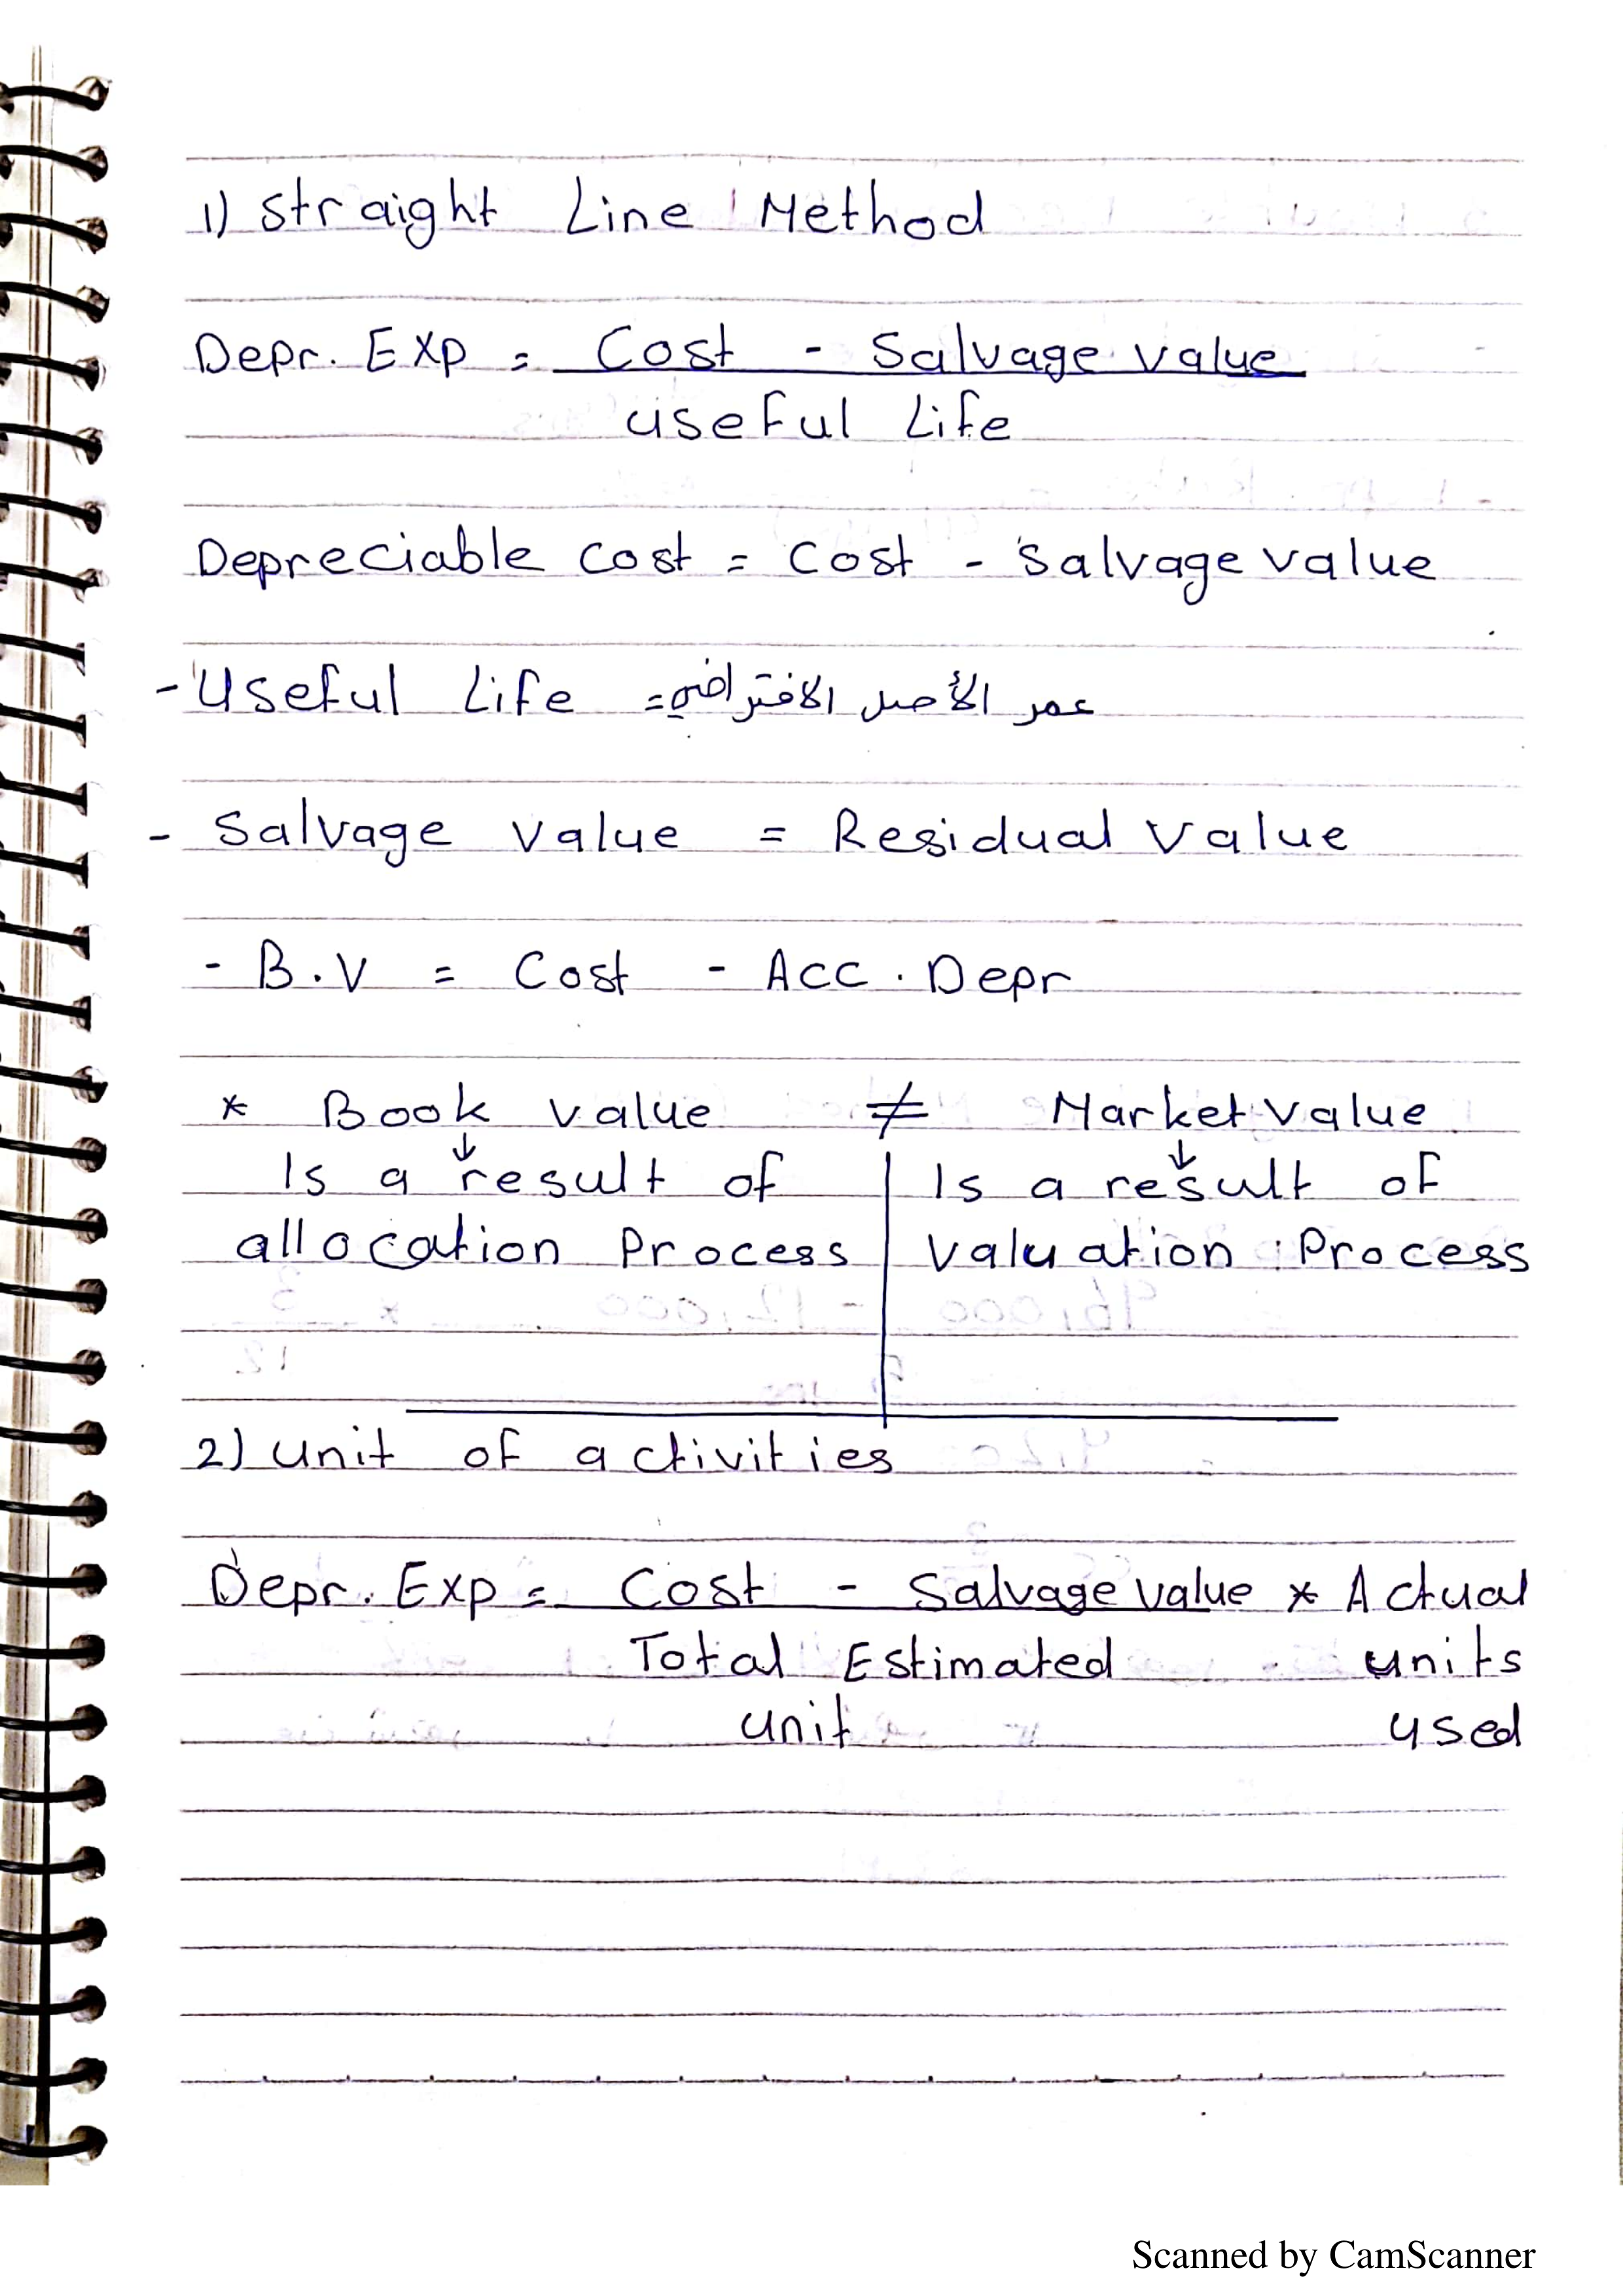 1) Straight Line Method
Depr. Exp = Cost - Salvage value
useful Life
Depreciable cost = Cost - Salvage value
- Useful Life = عمر الأصل الافتراضي
- Salvage value = Residual value
- B.V = Cost - Acc. Depr
* Book value ≠ Market value
↓ ↓
Is a result of Is a result of
allocation Process Valuation Process
2) unit of activities
Depr. Exp = Cost - Salvage value * Actual
Total Estimated units
unit used
Scanned by CamScanner